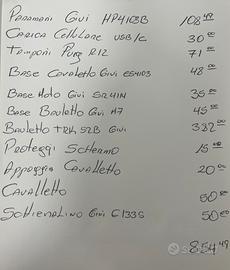 Paramani Givi HP4103B 108⁴⁹
Carica Cellulare USB/C 30⁰⁰
Tamponi Puig R12 71⁰⁰
Base Cavalletto Givi ES4103 48⁰⁰
Base Moto Givi SR4114 35⁰⁰
Base Bauletto Givi M7 45⁰⁰
Bauletto TRK 52B Givi 332⁰⁰
Proteggi Schermo 15⁰⁰
Appoggia Cavalletto 20⁰⁰
Cavalletto 50⁰⁰
Schienalino Givi E133S 50⁰⁰
854⁴⁹
subito